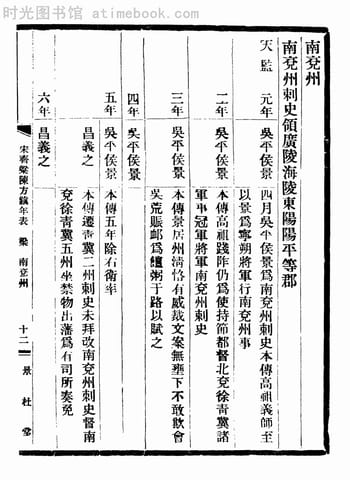 时光图书馆 www.sgtsg.com
南兗州
南兗州刺史領廣陵海陵東陽陽平等郡
天監 元年 吳平侯景 四月吳平侯景爲南兗州刺史本傳高祖義師至
以景爲寧朔將軍行南兗州事
二年 吳平侯景 本傳高祖踐阼仍爲使持節都督北兗徐青冀諸
軍事冠軍將軍南兗州刺史
三年 吳平侯景 本傳景居州清恪有威裁文案無壅下不敢欺會
吳荒賑䘏爲饘粥于路以賦之
四年 吳平侯景
五年 吳平侯景 本傳五年除右衛率
昌義之 本傳遷青冀二州刺史未拜改南兗州刺史督南
兗徐青冀五州坐禁物出藩爲有司所奏免
六年 昌義之
宋齊梁陳方鎮年表 梁 南兗州 十二 景杜堂